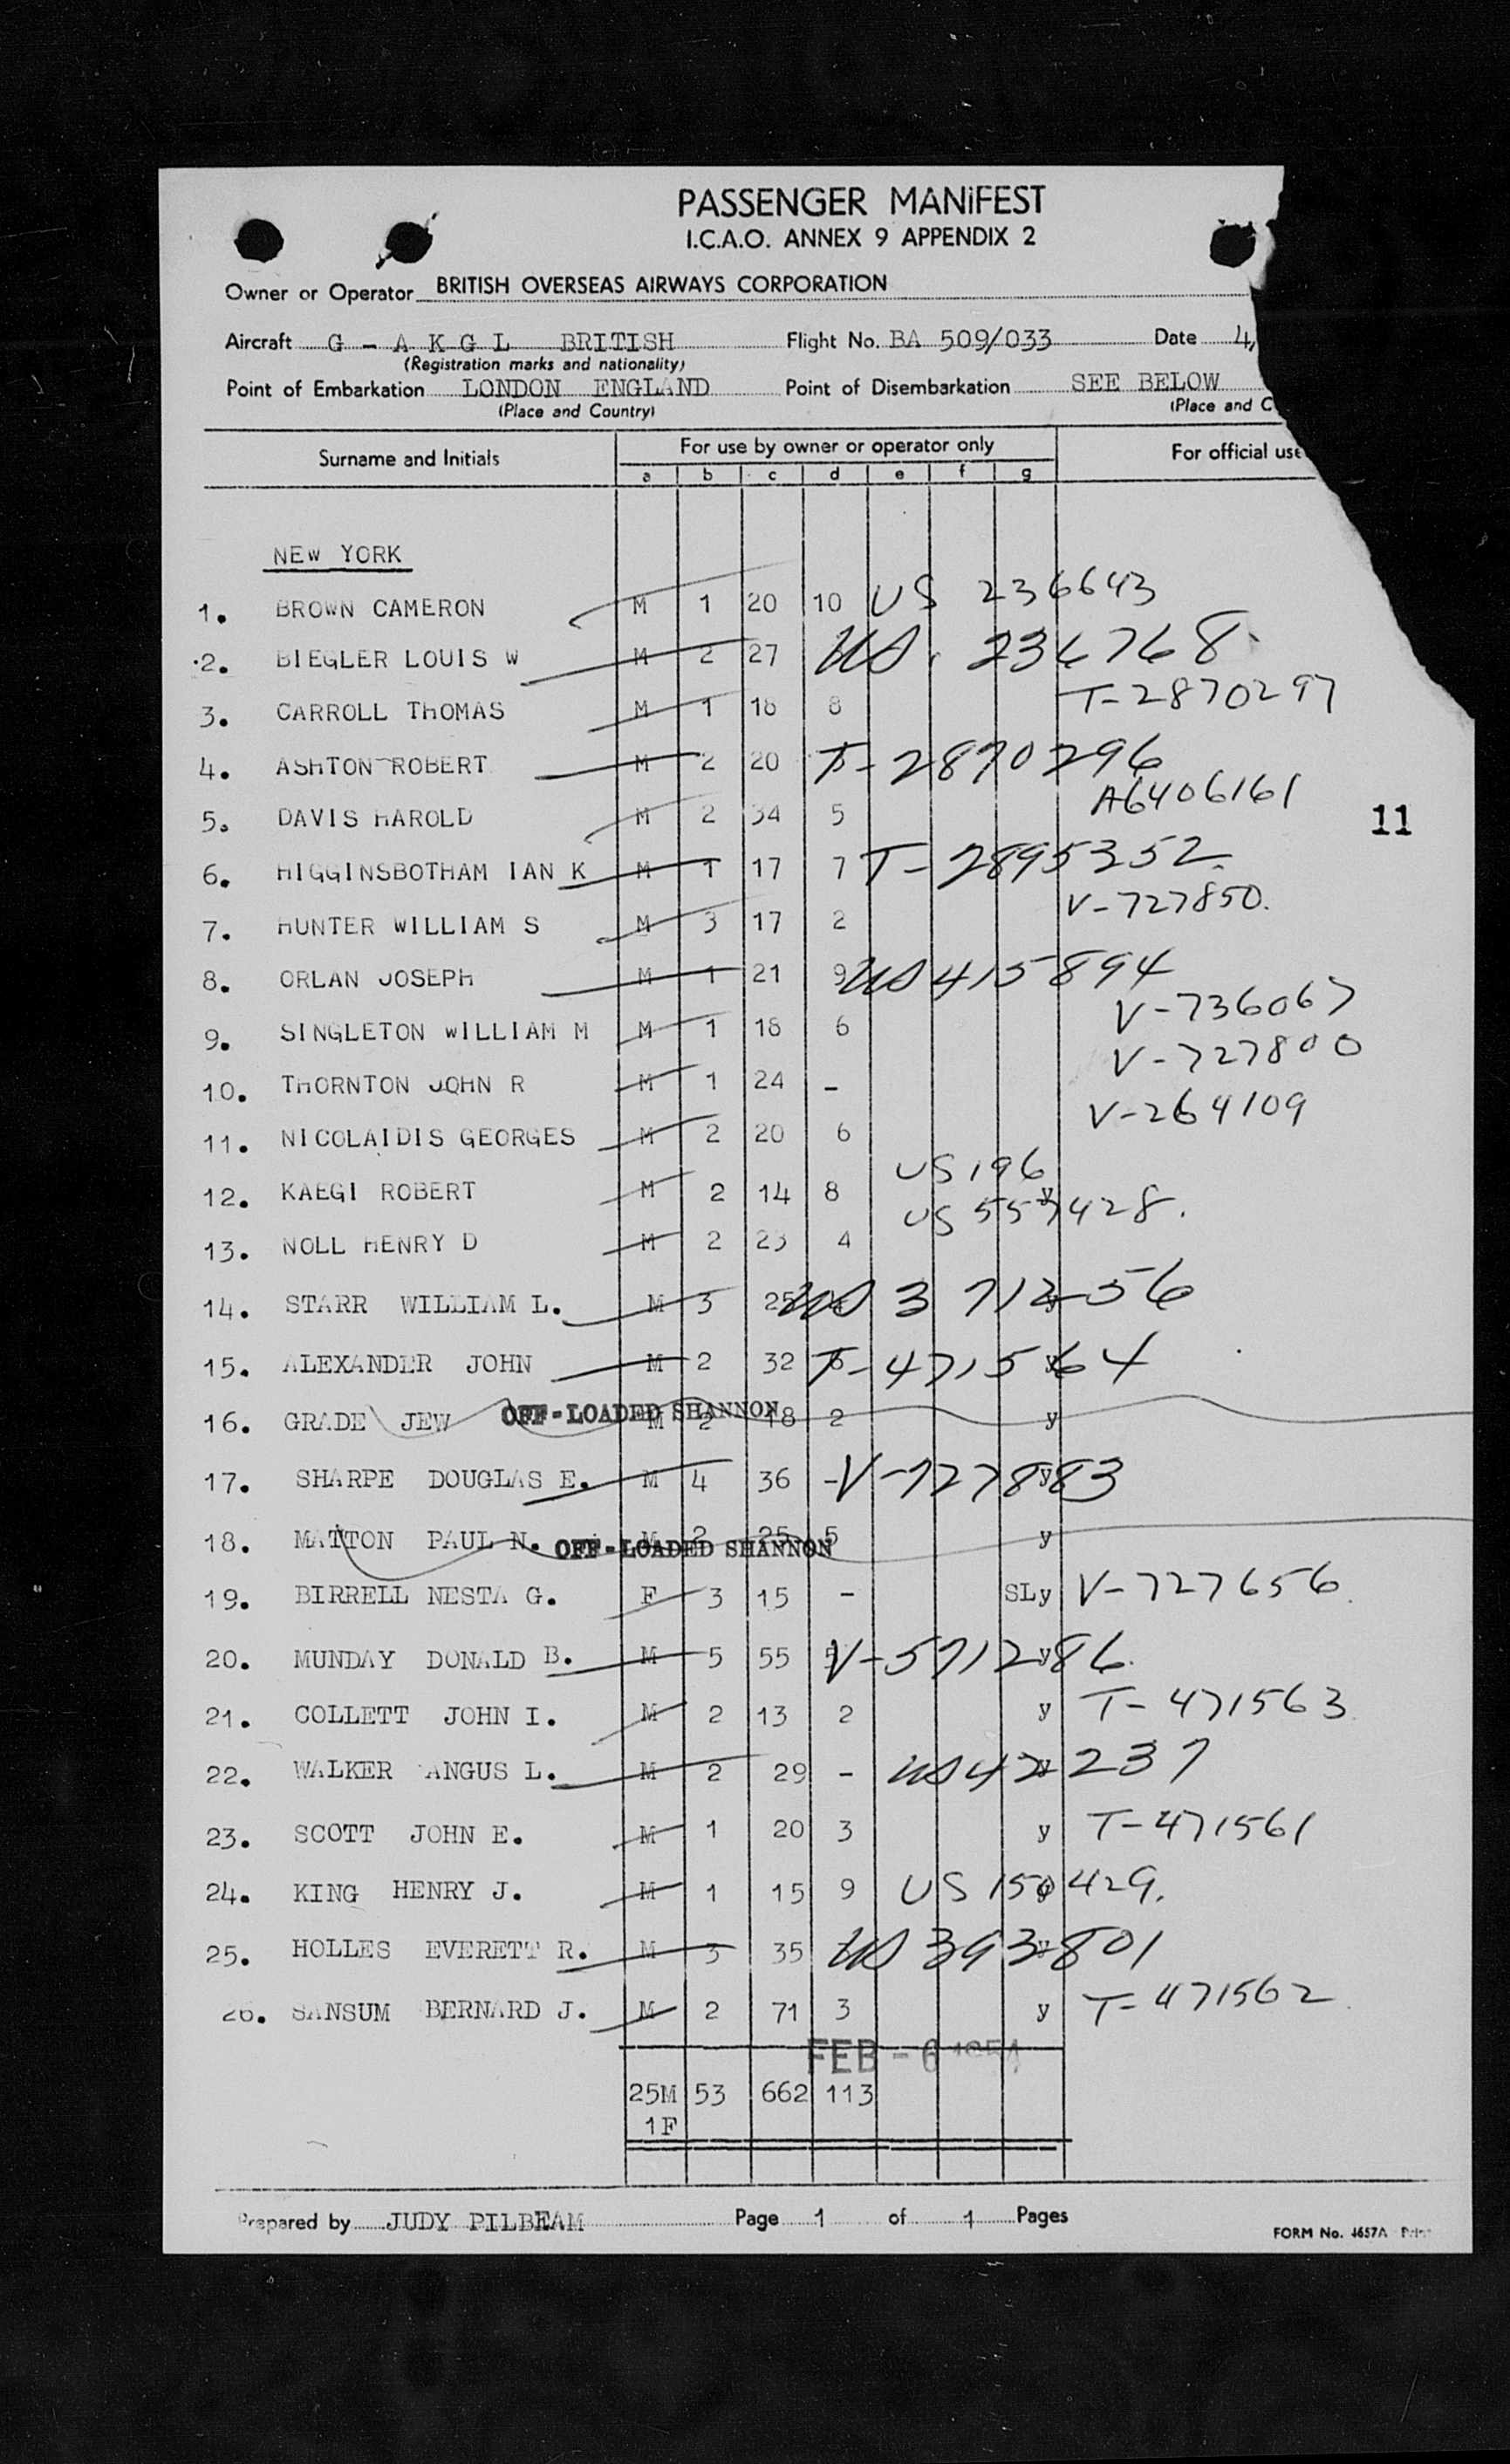 PASSENGER MANIFEST
I.C.A.O. ANNEX 9 APPENDIX 2
Owner or Operator BRITISH OVERSEAS AIRWAYS CORPORATION
Aircraft G - A K G L BRITISH Flight No. BA 509/033 Date 4,
(Registration marks and nationality)
Point of Embarkation LONDON ENGLAND Point of Disembarkation SEE BELOW
(Place and Country) (Place and C
Surname and Initials For use by owner or operator only For official use
a b c d e f g
NEW YORK
1. BROWN CAMERON M 1 20 10 US 236643
2. BIEGLER LOUIS W M 2 27 US.
3. CARROLL THOMAS M 1 18 8 T-2870297
4. ASHTON ROBERT M 2 20 T-2870296
5. DAVIS HAROLD M 2 34 5 A6406161
11
6. HIGGINSBOTHAM IAN K M 1 17 7 T-2895352
7. HUNTER WILLIAM S M 3 17 2 V-727850.
8. ORLAN JOSEPH M 1 21 9 US 415894
9. SINGLETON WILLIAM M M 1 18 6 V-736067
10. THORNTON JOHN R M 1 24 - V-727800
11. NICOLAIDIS GEORGES M 2 20 6 V-264109
12. KAEGI ROBERT M 2 14 8 US 196 y
13. NOLL HENRY D M 2 23 4 US 557428.
14. STARR WILLIAM L. M 3 25 US 371256
15. ALEXANDER JOHN M 2 32 T-471564
16. GRADE JEW OFF-LOADED SHANNON M 2 18 2 y
17. SHARPE DOUGLAS E. M 4 36 - V-727883
18. MATTON PAUL N. OFF-LOADED SHANNON M 2 25 5 y
19. BIRRELL NESTA G. F 3 15 - SLy V-727656
20. MUNDAY DONALD B. M 5 55 V-571286
21. COLLETT JOHN I. M 2 13 2 y T-471563
22. WALKER ANGUS L. M 2 29 - US
23. SCOTT JOHN E. M 1 20 3 y T-471561
24. KING HENRY J. M 1 15 9 US 150429.
25. HOLLES EVERETT R. M 3 35 US 393801
26. SANSUM BERNARD J. M 2 71 3 y T-471562
FEB - 6 1954
25M 53 662 113
1F
Prepared by JUDY PILBEAM Page 1 of 1 Pages
FORM No. 1657A